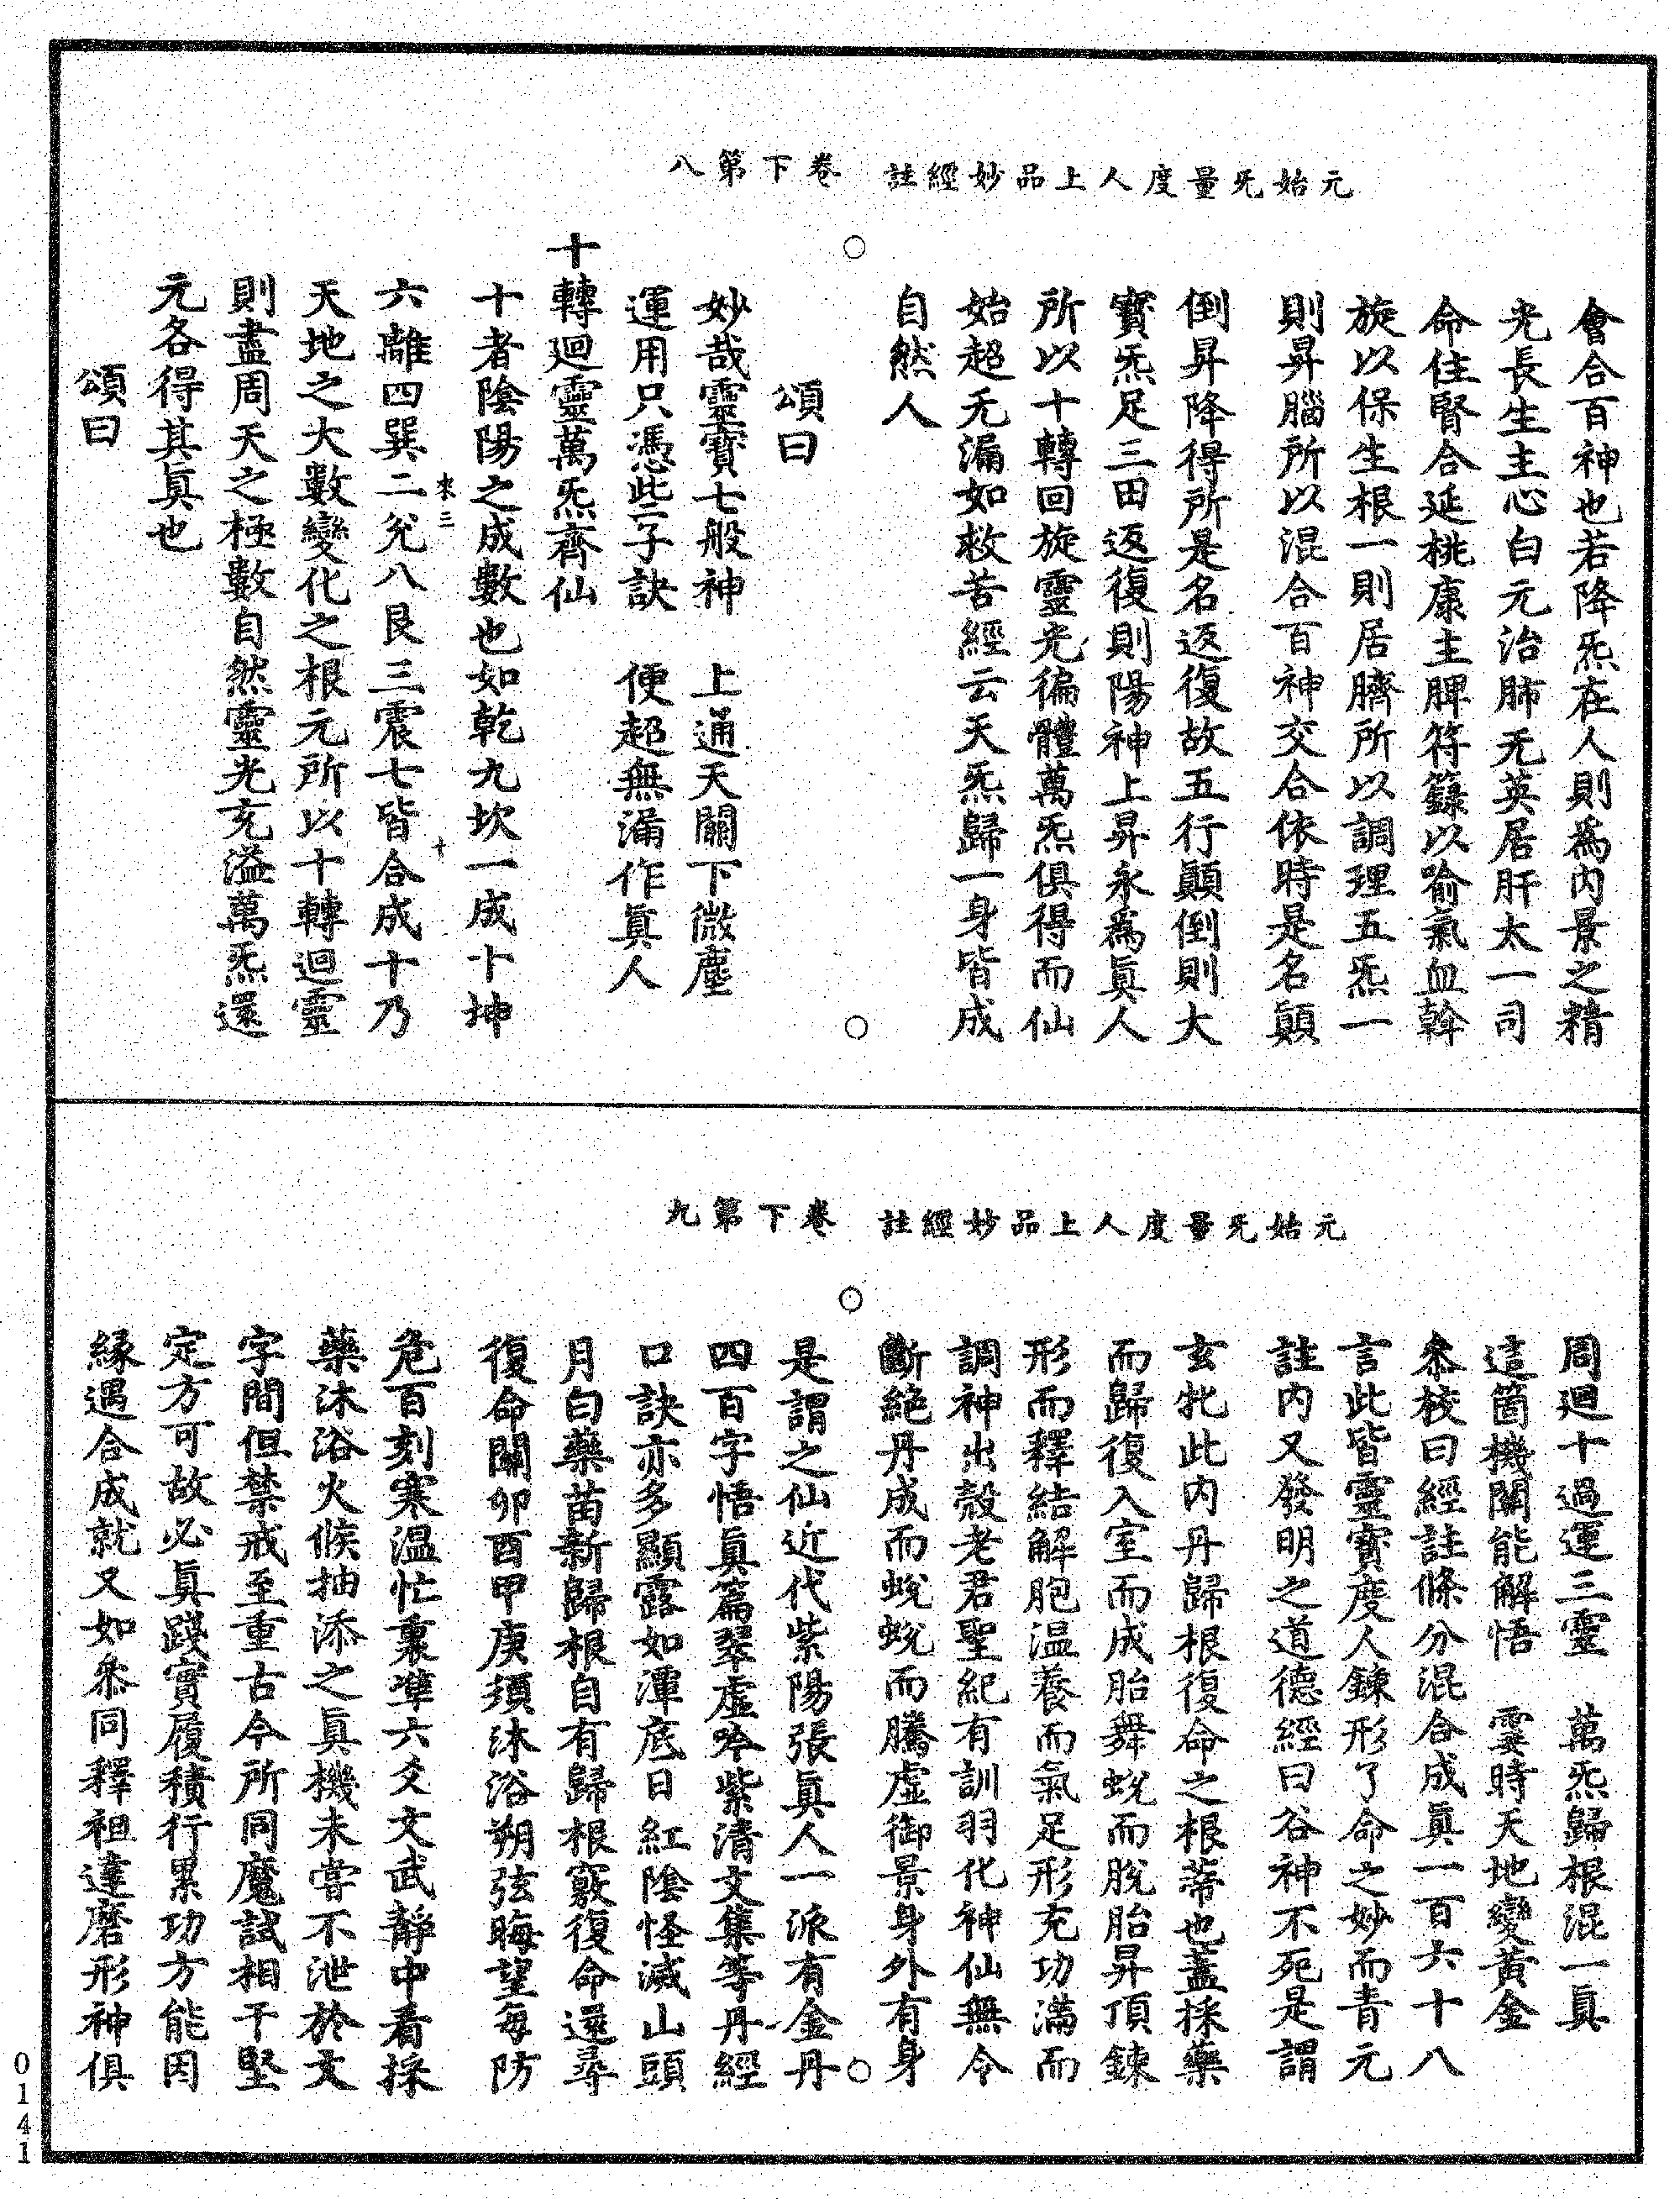 元始旡量度人上品妙經註　卷下第八
會合百神也若降炁在人則爲內景之精
光長生主心白元治肺无英居肝太一司
命住腎合延桃康主脾符籙以喻氣血斡
旋以保生根一則居臍所以調理五炁一
則昇腦所以混合百神交合依時是名顛
倒昇降得所是名返復故五行顛倒則大
寶炁足三田返復則陽神上昇永爲眞人
所以十轉回旋靈光徧體萬炁俱得而仙
始超无漏如救苦經云天炁歸一身皆成
自然人
頌曰
妙哉靈寶七般神　上通天關下微塵
運用只憑些子訣　便超無漏作眞人
十轉迴靈萬炁齊仙
十者陰陽之成數也如乾九坎一成十坤
六離四巽二兊八艮三震七皆合成十乃
來三　十
天地之大數變化之根元所以十轉迴靈
則盡周天之極數自然靈光充溢萬炁還
元各得其眞也
頌曰
元始旡量度人上品妙經註　卷下第九
周迴十過運三靈　萬炁歸根混一眞
這箇機關能解悟　霎時天地變黃金
叅校曰經註條分混合成眞一百六十八
言此皆靈寶度人鍊形了命之妙而青元
註內又發明之道德經曰谷神不死是謂
玄牝此內丹歸根復命之根蔕也蓋採藥
而歸復入室而成胎舞蛻而脫胎昇頂鍊
形而釋結解胞温養而氣足形充功滿而
調神出殼老君聖紀有訓羽化神仙無令
斷絕丹成而蛻蛻而騰虛御景身外有身
是謂之仙近代紫陽張眞人一派有金丹
四百字悟眞篇翠虛吟紫清文集等丹經
口訣亦多顯露如潭底日紅陰怪滅山頭
月白藥苗新歸根自有歸根竅復命還尋
復命關卯酉甲庚須沐浴朔弦晦望每防
危百刻寒温忙裏準六爻文武靜中看採
藥沐浴火候抽添之眞機未嘗不泄於文
字間但禁戒至重古今所同魔試相干堅
定方可故必眞踐實履積行累功方能因
緣遇合成就又如叅同釋祖達磨形神俱
0141